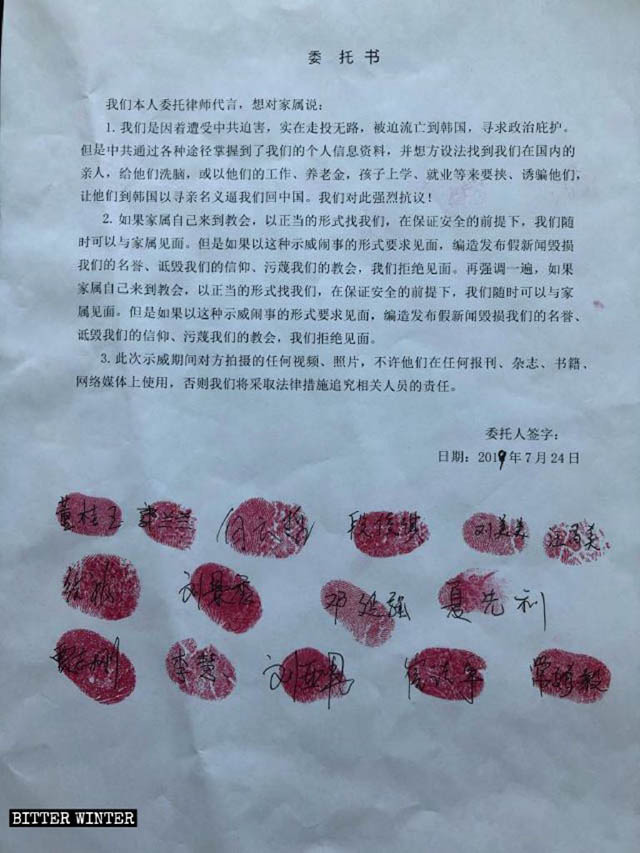 委 托 书
我们本人委托律师代言，想对家属说：
1. 我们是因着遭受中共迫害，实在走投无路，被迫流亡到韩国，寻求政治庇护。
但是中共通过各种途径掌握到了我们的个人信息资料，并想方设法找到我们在国内的
亲人，给他们洗脑，或以他们的工作、养老金，孩子上学、就业等来要挟、诱骗他们，
让他们到韩国以寻亲名义逼我们回中国。我们对此强烈抗议！
2. 如果家属自己来到教会，以正当的形式找我们，在保证安全的前提下，我们随
时可以与家属见面。但是如果以这种示威闹事的形式要求见面，编造发布假新闻毁损
我们的名誉、诋毁我们的信仰、污蔑我们的教会，我们拒绝见面。再强调一遍，如果
家属自己来到教会，以正当的形式找我们，在保证安全的前提下，我们随时可以与家
属见面。但是如果以这种示威闹事的形式要求见面，编造发布假新闻毁损我们的名誉、
诋毁我们的信仰、污蔑我们的教会，我们拒绝见面。
3. 此次示威期间对方拍摄的任何视频、照片，不许他们在任何报刊、杂志、书籍、
网络媒体上使用，否则我们将采取法律措施追究相关人员的责任。
委托人签字：
日期：2019 年 7 月 24 日
董桂玉 刘美秀
邓延强 夏先利
李慧
BITTER WINTER